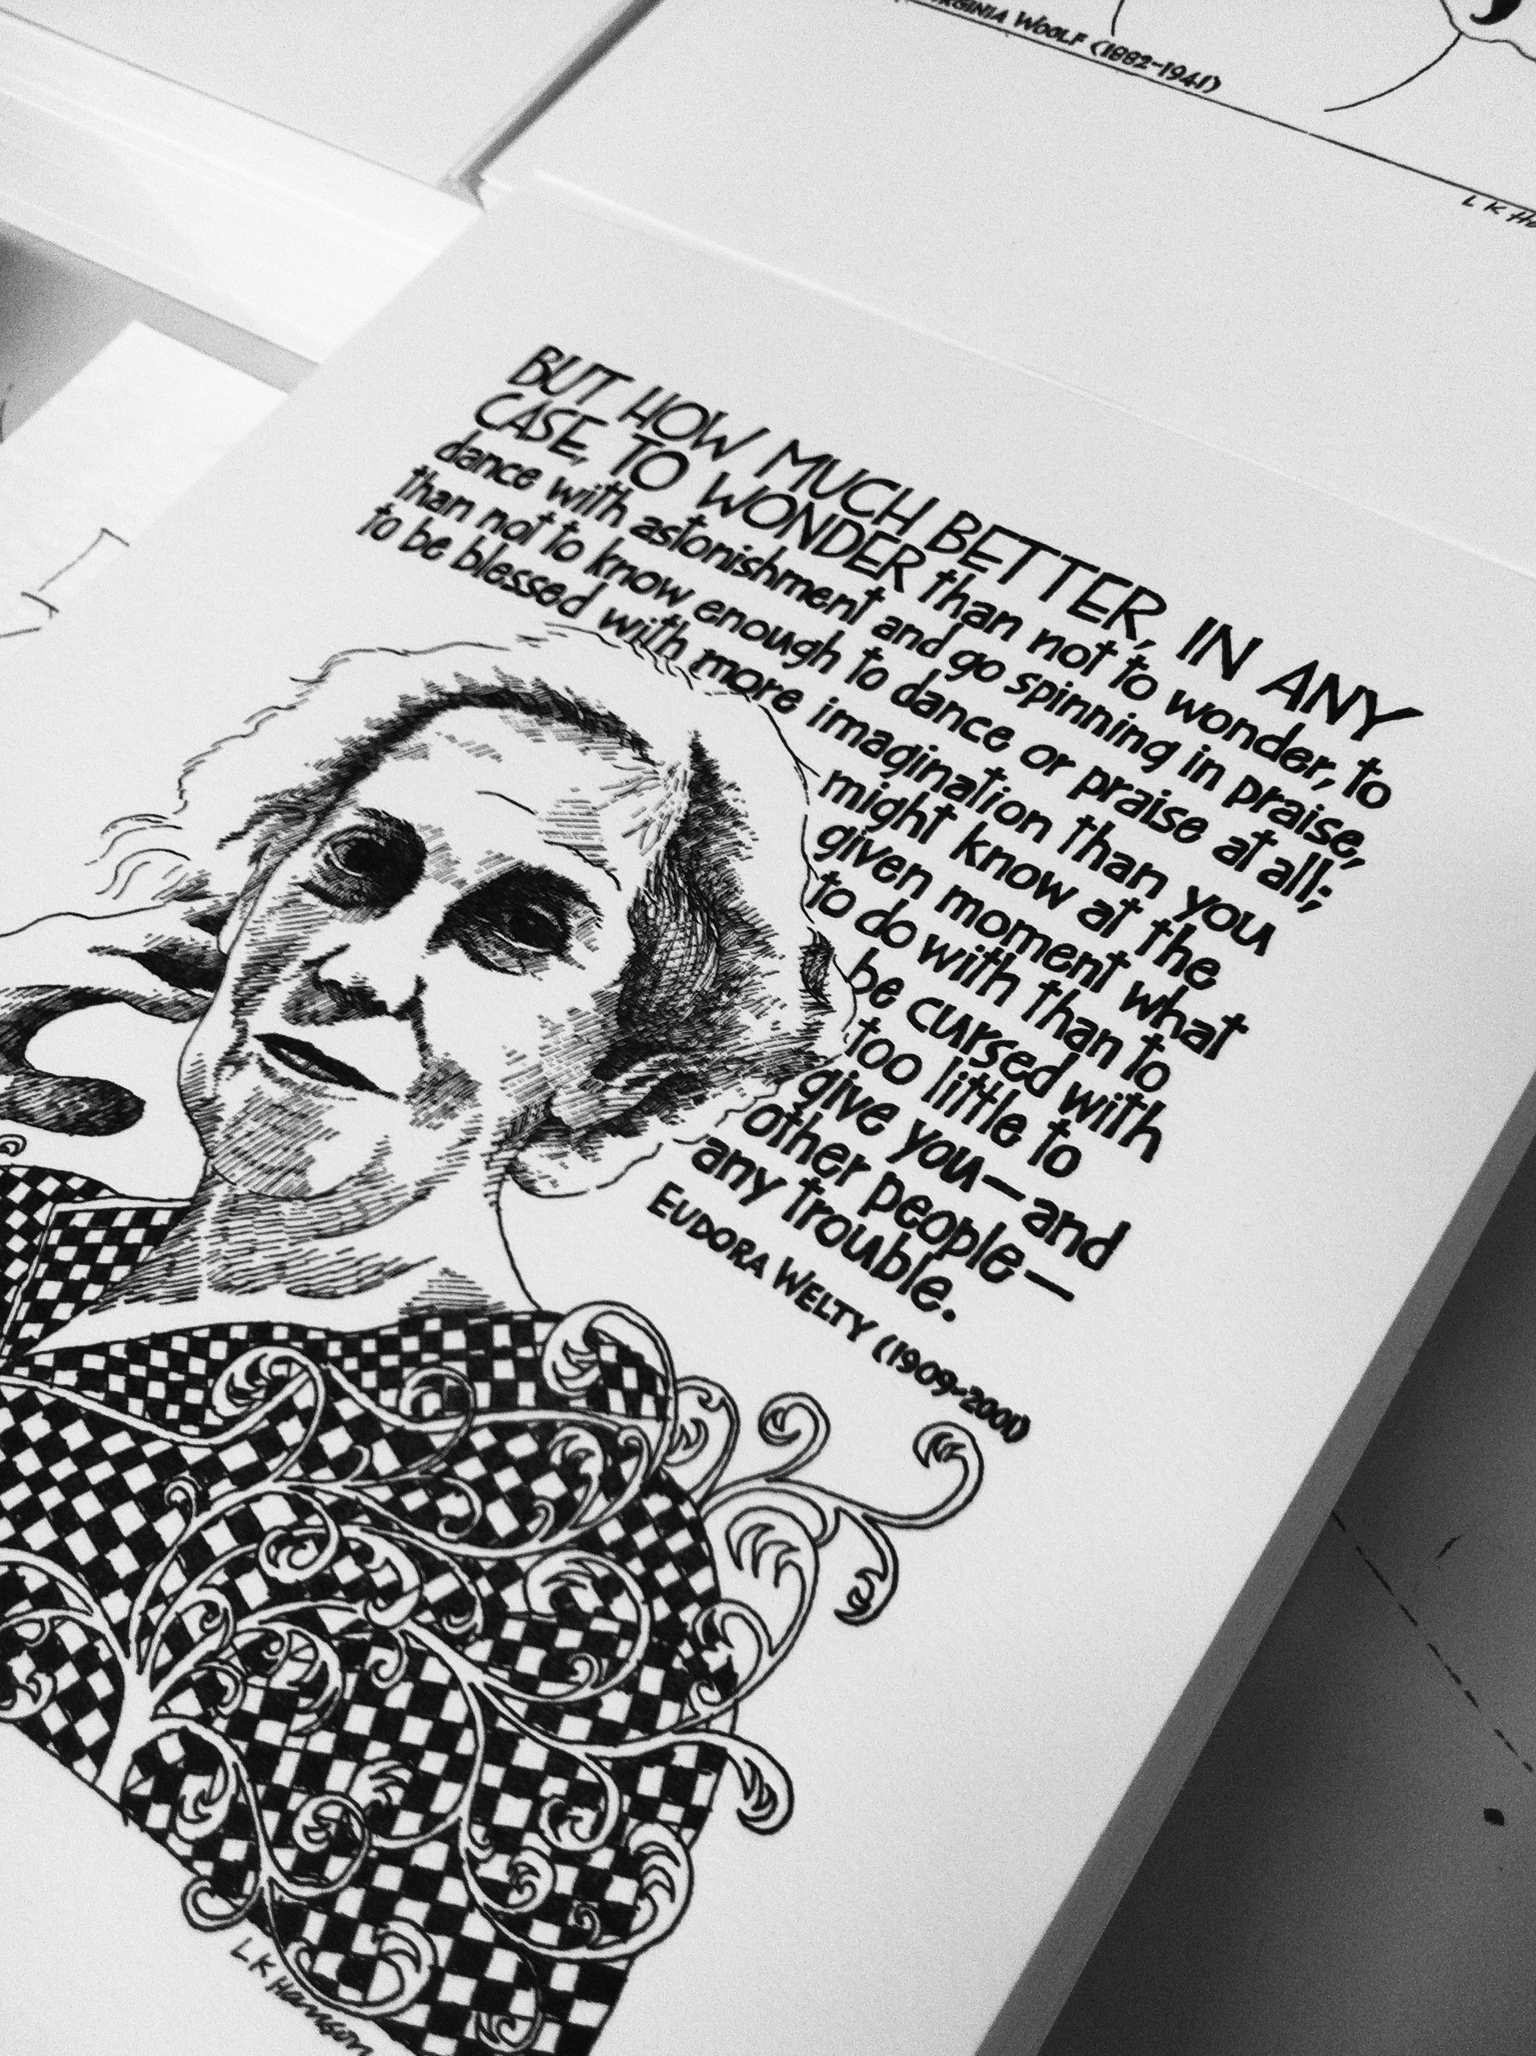 VIRGINIA WOOLF (1882-1941)
L K
BUT HOW MUCH BETTER, IN ANY
CASE, TO WONDER than not to wonder, to
dance with astonishment and go spinning in praise,
than not to know enough to dance or praise at all;
to be blessed with more imagination than you
might know at the
given moment what
to do with than to
be cursed with
too little to
give you—and
other people—
any trouble.
EUDORA WELTY (1909-2001)
L K Hanson